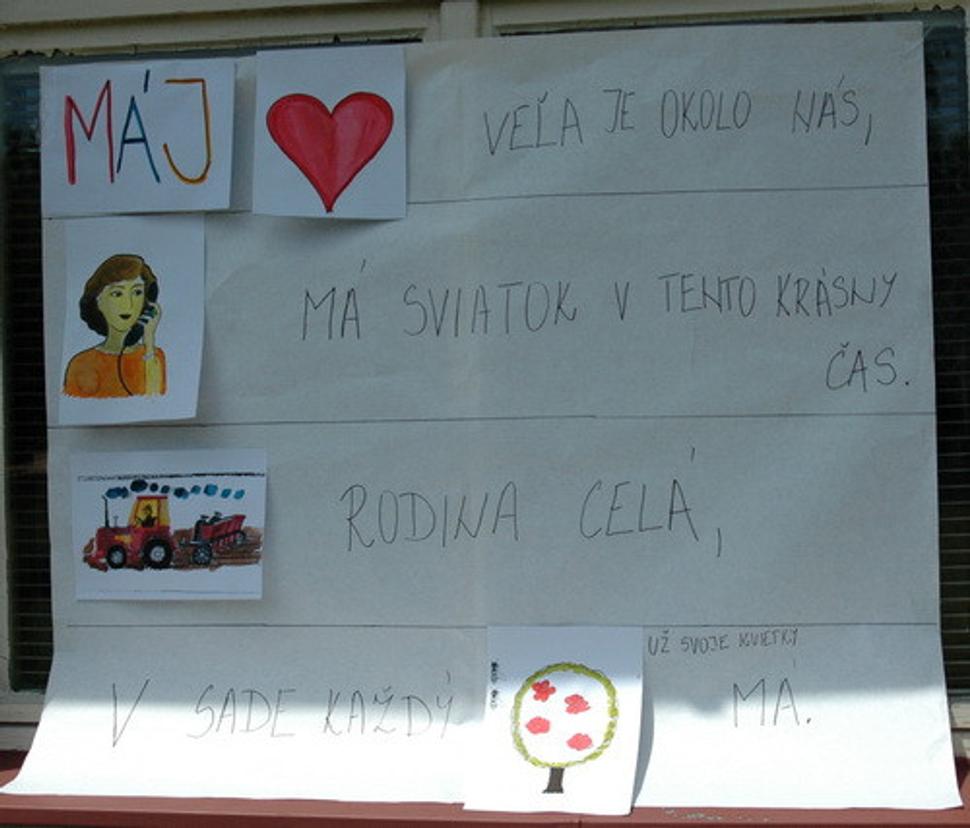 MÁJ VEĽA JE OKOLO NÁS,
MÁ SVIATOK V TENTO KRÁSNY
ČAS.
RODINA CELÁ,
UŽ SVOJE KVIETKY
V SADE KAŽDÝ MÁ.